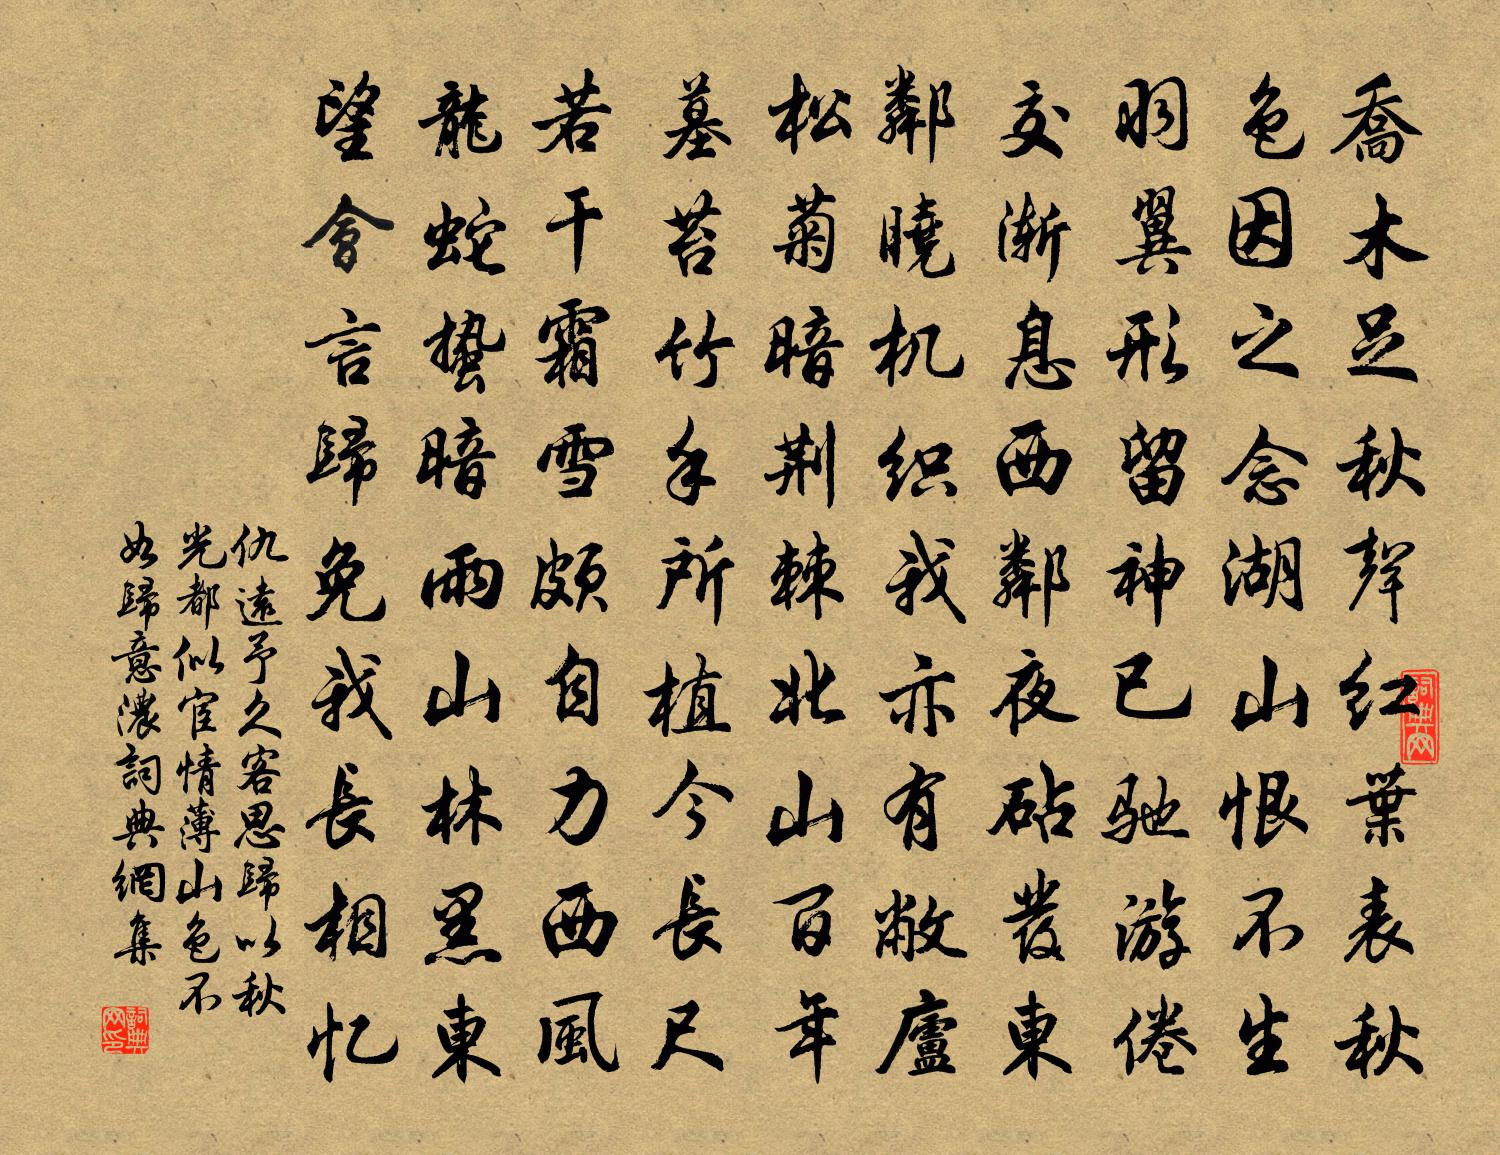 喬木足秋聲红葉表秋
色因之念湖山恨不生
羽翼形留神已驰游倦
交渐息西鄰夜砧發東
鄰曉机织我亦有敝廬
松菊暗荆棘北山百年
墓苔竹手所植今長尺
若干霜雪頗自力西風
龍蛇蛰暗雨山林黑東
望會言歸免我長相忆
仇遠予久客思歸以秋
光都似宦情薄山色不
如歸意濃詞典網集
詞典网
詞典网印